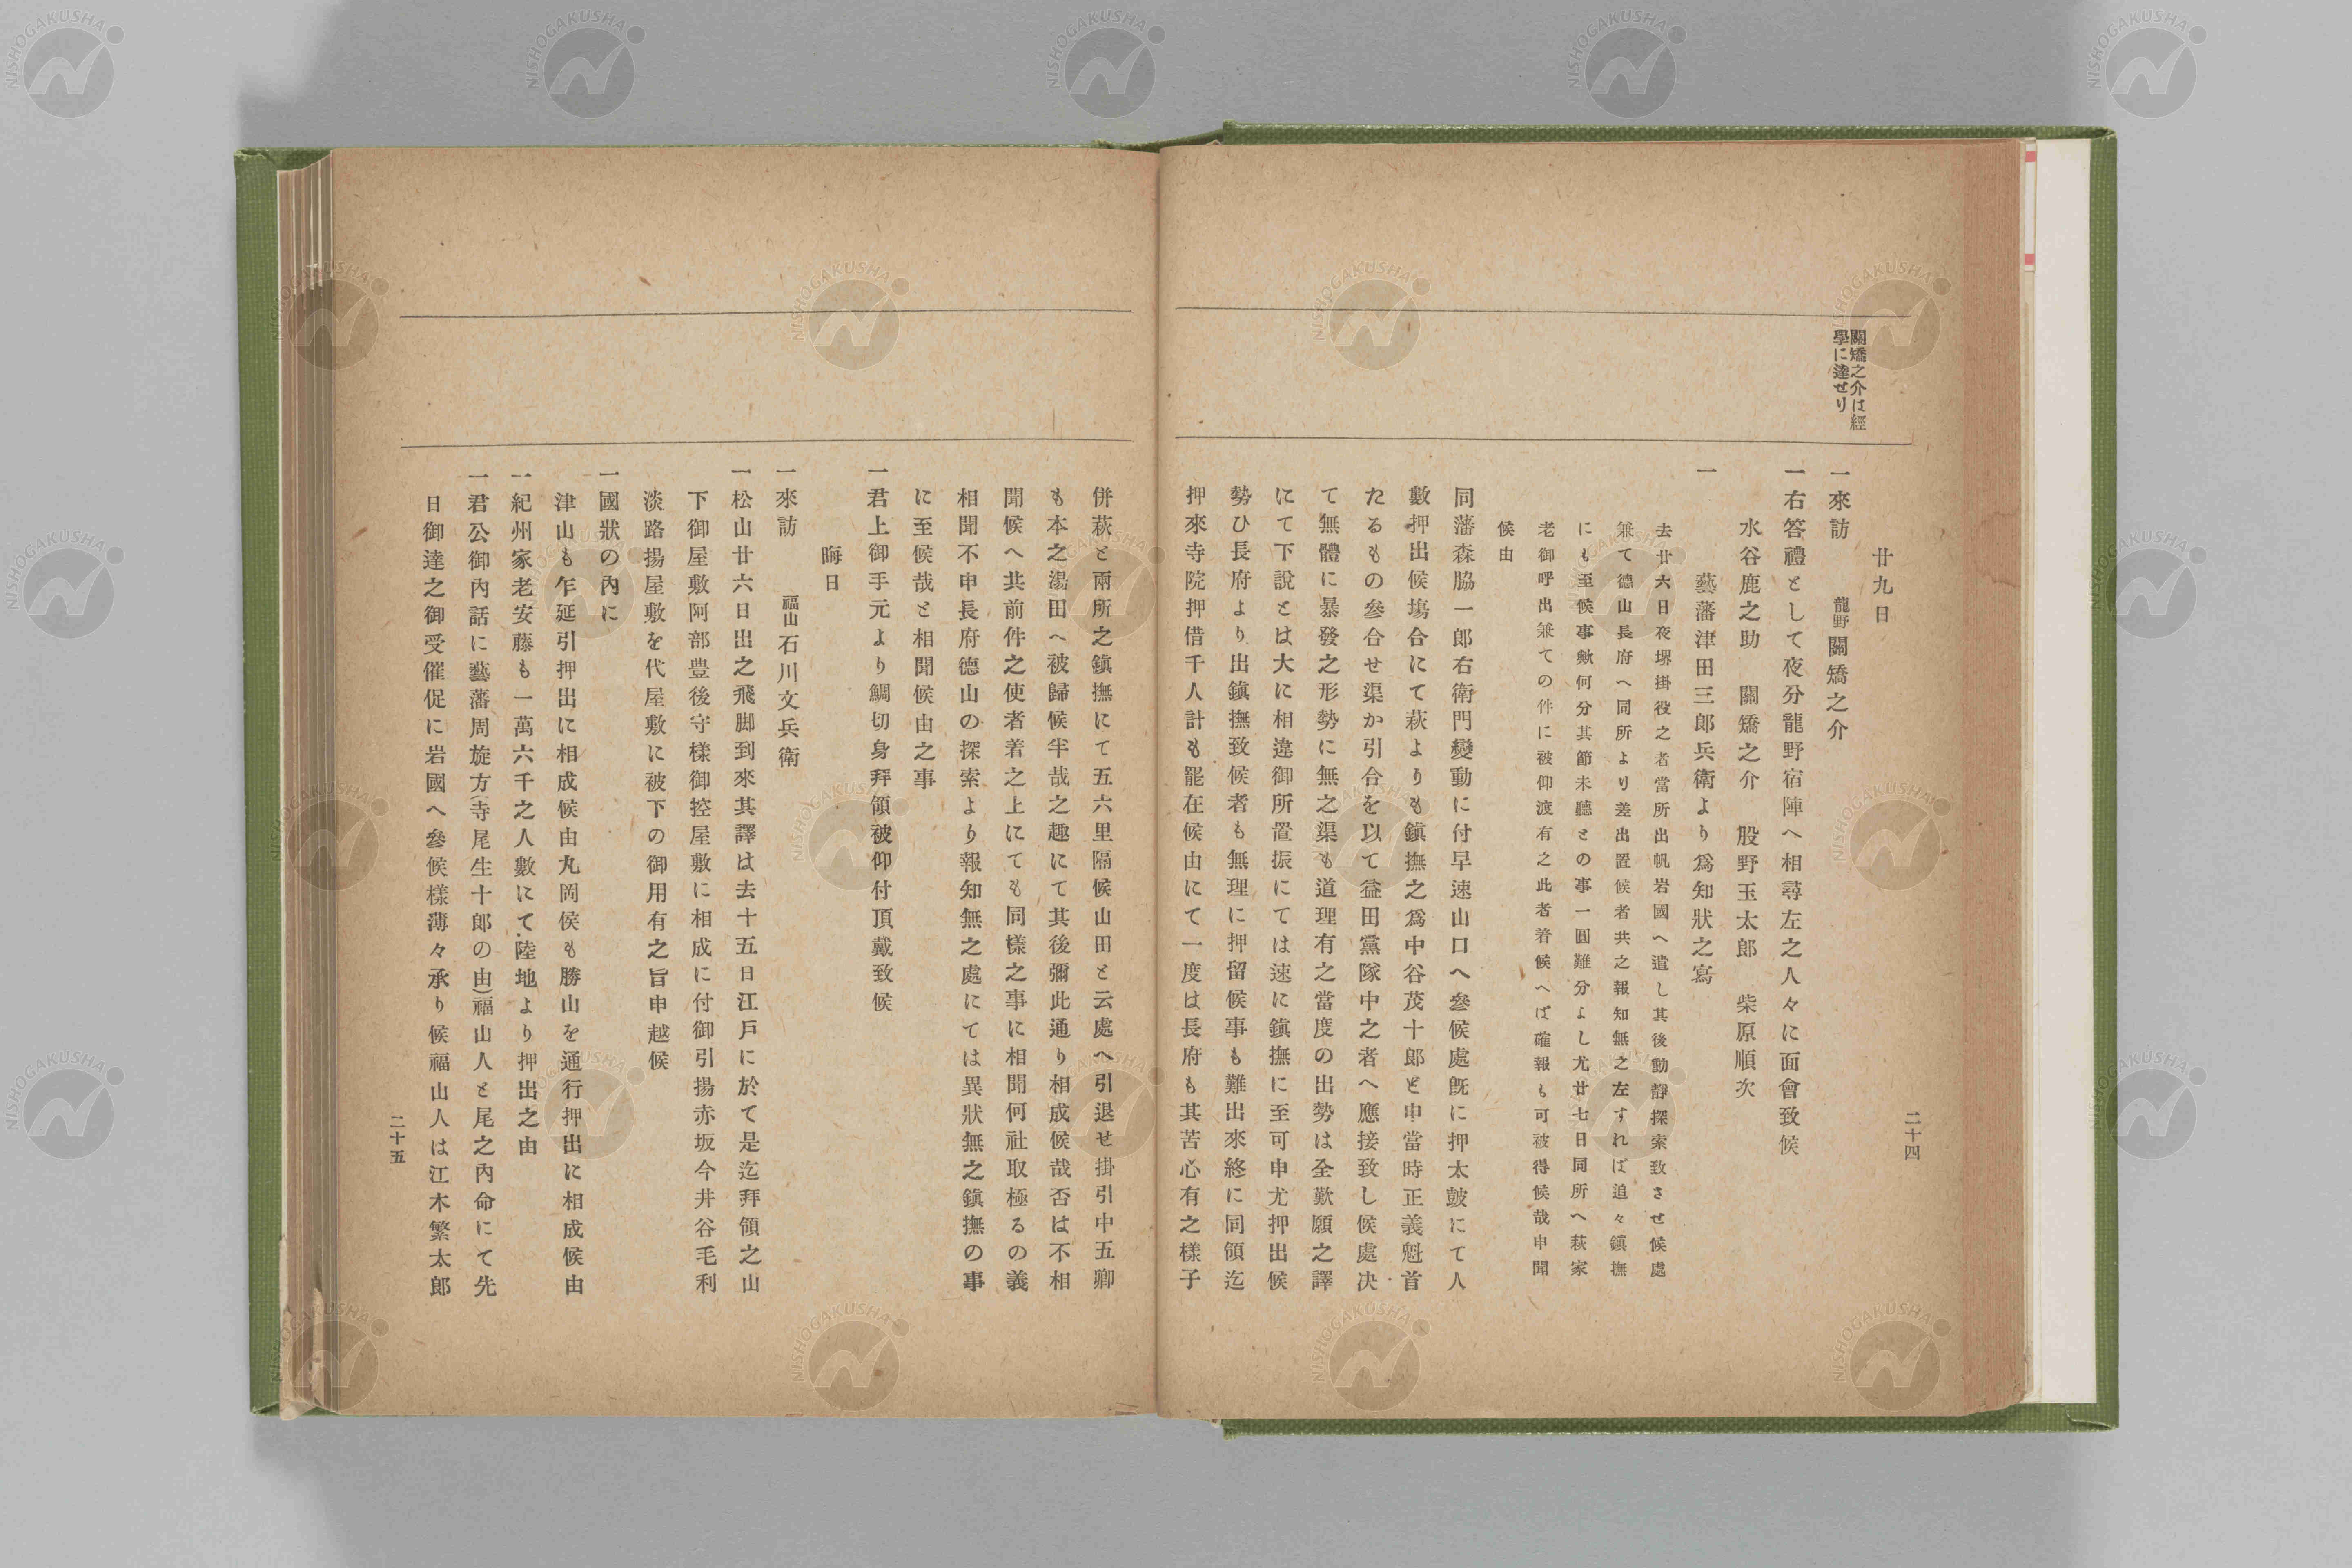 關矯之介は經
學に達せり
廿九日
一來訪 龍野關矯之介
一右答禮として夜分龍野宿陣へ相尋左之人々に面會致候
水谷鹿之助 關矯之介 股野玉太郎 柴原順次
一 藝藩津田三郎兵衛より爲知狀之寫
去廿六日夜堺掛役之者當所出帆岩國へ遣し其後動靜探索致させ候處
兼て德山長府へ同所より差出置候者共之報知無之左すれば追々鎭撫
にも至候事歟何分其節未聽との事一圓難分よし尤廿七日同所へ萩家
老御呼出兼ての件に被仰渡有之此者着候へば確報も可被得候哉申聞
候由
同藩森脇一郎右衛門變動に付早速山口へ參候處旣に押太皷にて人
數押出候塲合にて萩よりも鎭撫之爲中谷茂十郎と申當時正義魁首
たるもの參合せ渠か引合を以て益田黨隊中之者へ應接致し候處决
て無體に暴發之形勢に無之渠も道理有之當度の出勢は全歎願之譯
にて下說とは大に相違御所置振にては速に鎭撫に至可申尤押出候
勢ひ長府より出鎭撫致候者も無理に押留候事も難出來終に同領迄
押來寺院押借千人計も罷在候由にて一度は長府も其苦心有之樣子
二十四
併萩と兩所之鎭撫にて五六里隔候山田と云處へ引退せ掛引中五卿
も本之湯田へ被歸候半哉之趣にて其後彌此通り相成候哉否は不相
聞候へ共前件之使者着之上にても同樣之事に相聞何社取極るの義
相聞不申長府德山の探索より報知無之處にては異狀無之鎭撫の事
に至候哉と相聞候由之事
一君上御手元より鯛切身拜領被仰付頂戴致候
晦日
一來訪 福山石川文兵衛
一松山廿六日出之飛脚到來其譯は去十五日江戶に於て是迄拜領之山
下御屋敷阿部豊後守樣御控屋敷に相成に付御引揚赤坂今井谷毛利
淡路揚屋敷を代屋敷に被下の御用有之旨申越候
一國狀の內に
津山も乍延引押出に相成候由丸岡侯も勝山を通行押出に相成候由
一紀州家老安藤も一萬六千之人數にて陸地より押出之由
一君公御內話に藝藩周旋方(寺尾生十郎の由)福山人と尾之內命にて先
日御達之御受催促に岩國へ參候樣薄々承り候福山人は江木繁太郎
二十五
NISHOGAKUSHA